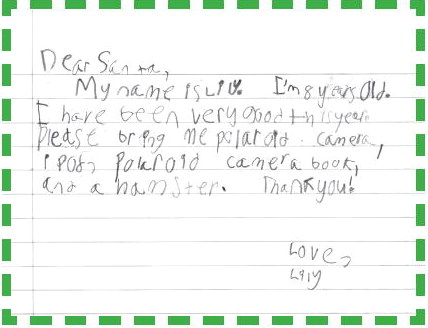 Dear Santa,
My name is Lily. I'm 8 years old.
I have been very good this year.
Please bring me polaroid camera,
ipod, polaroid camera book,
and a hamster. Thank you!
Love,
Lily